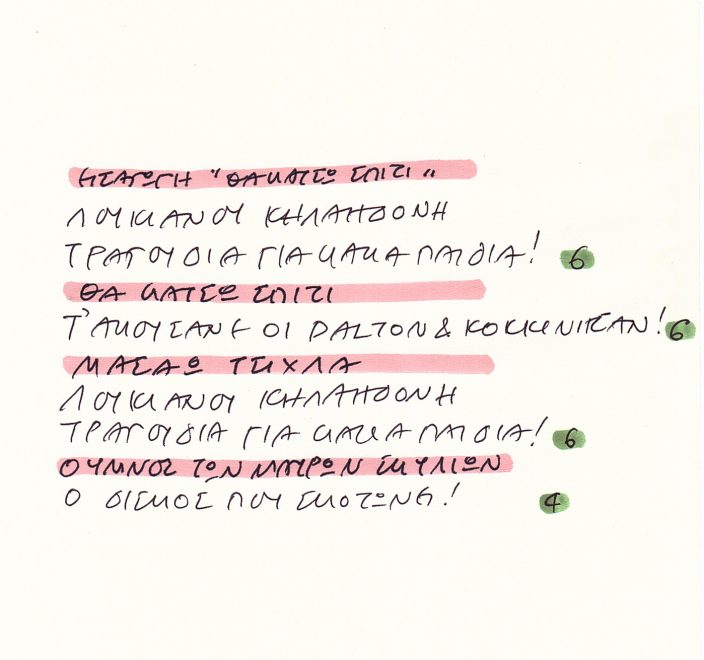 ΕΙΣΑΓΩΓΗ "ΘΑ ΚΑΤΣΩ ΣΠΙΤΙ"
ΛΟΥΚΙΑΝΟΥ ΚΗΛΑΗΔΟΝΗ
ΤΡΑΓΟΥΔΙΑ ΓΙΑ ΚΑΚΑ ΠΑΙΔΙΑ! 6
ΘΑ ΚΑΤΣΩ ΣΠΙΤΙ
Τ' ΑΚΟΥΣΑΝΕ ΟΙ DALTON & ΚΟΚΚΙΝΙΤΣΑΝ! 6
ΜΑΣΑΩ ΤΣΙΧΛΑ
ΛΟΥΚΙΑΝΟΥ ΚΗΛΑΗΔΟΝΗ
ΤΡΑΓΟΥΔΙΑ ΓΙΑ ΚΑΚΑ ΠΑΙΔΙΑ! 6
Ο ΥΜΝΟΣ ΤΩΝ ΜΑΥΡΩΝ ΣΚΥΛΙΩΝ
Ο ΔΙΣΚΟΣ ΠΟΥ ΣΚΟΤΩΝΕΙ! 4